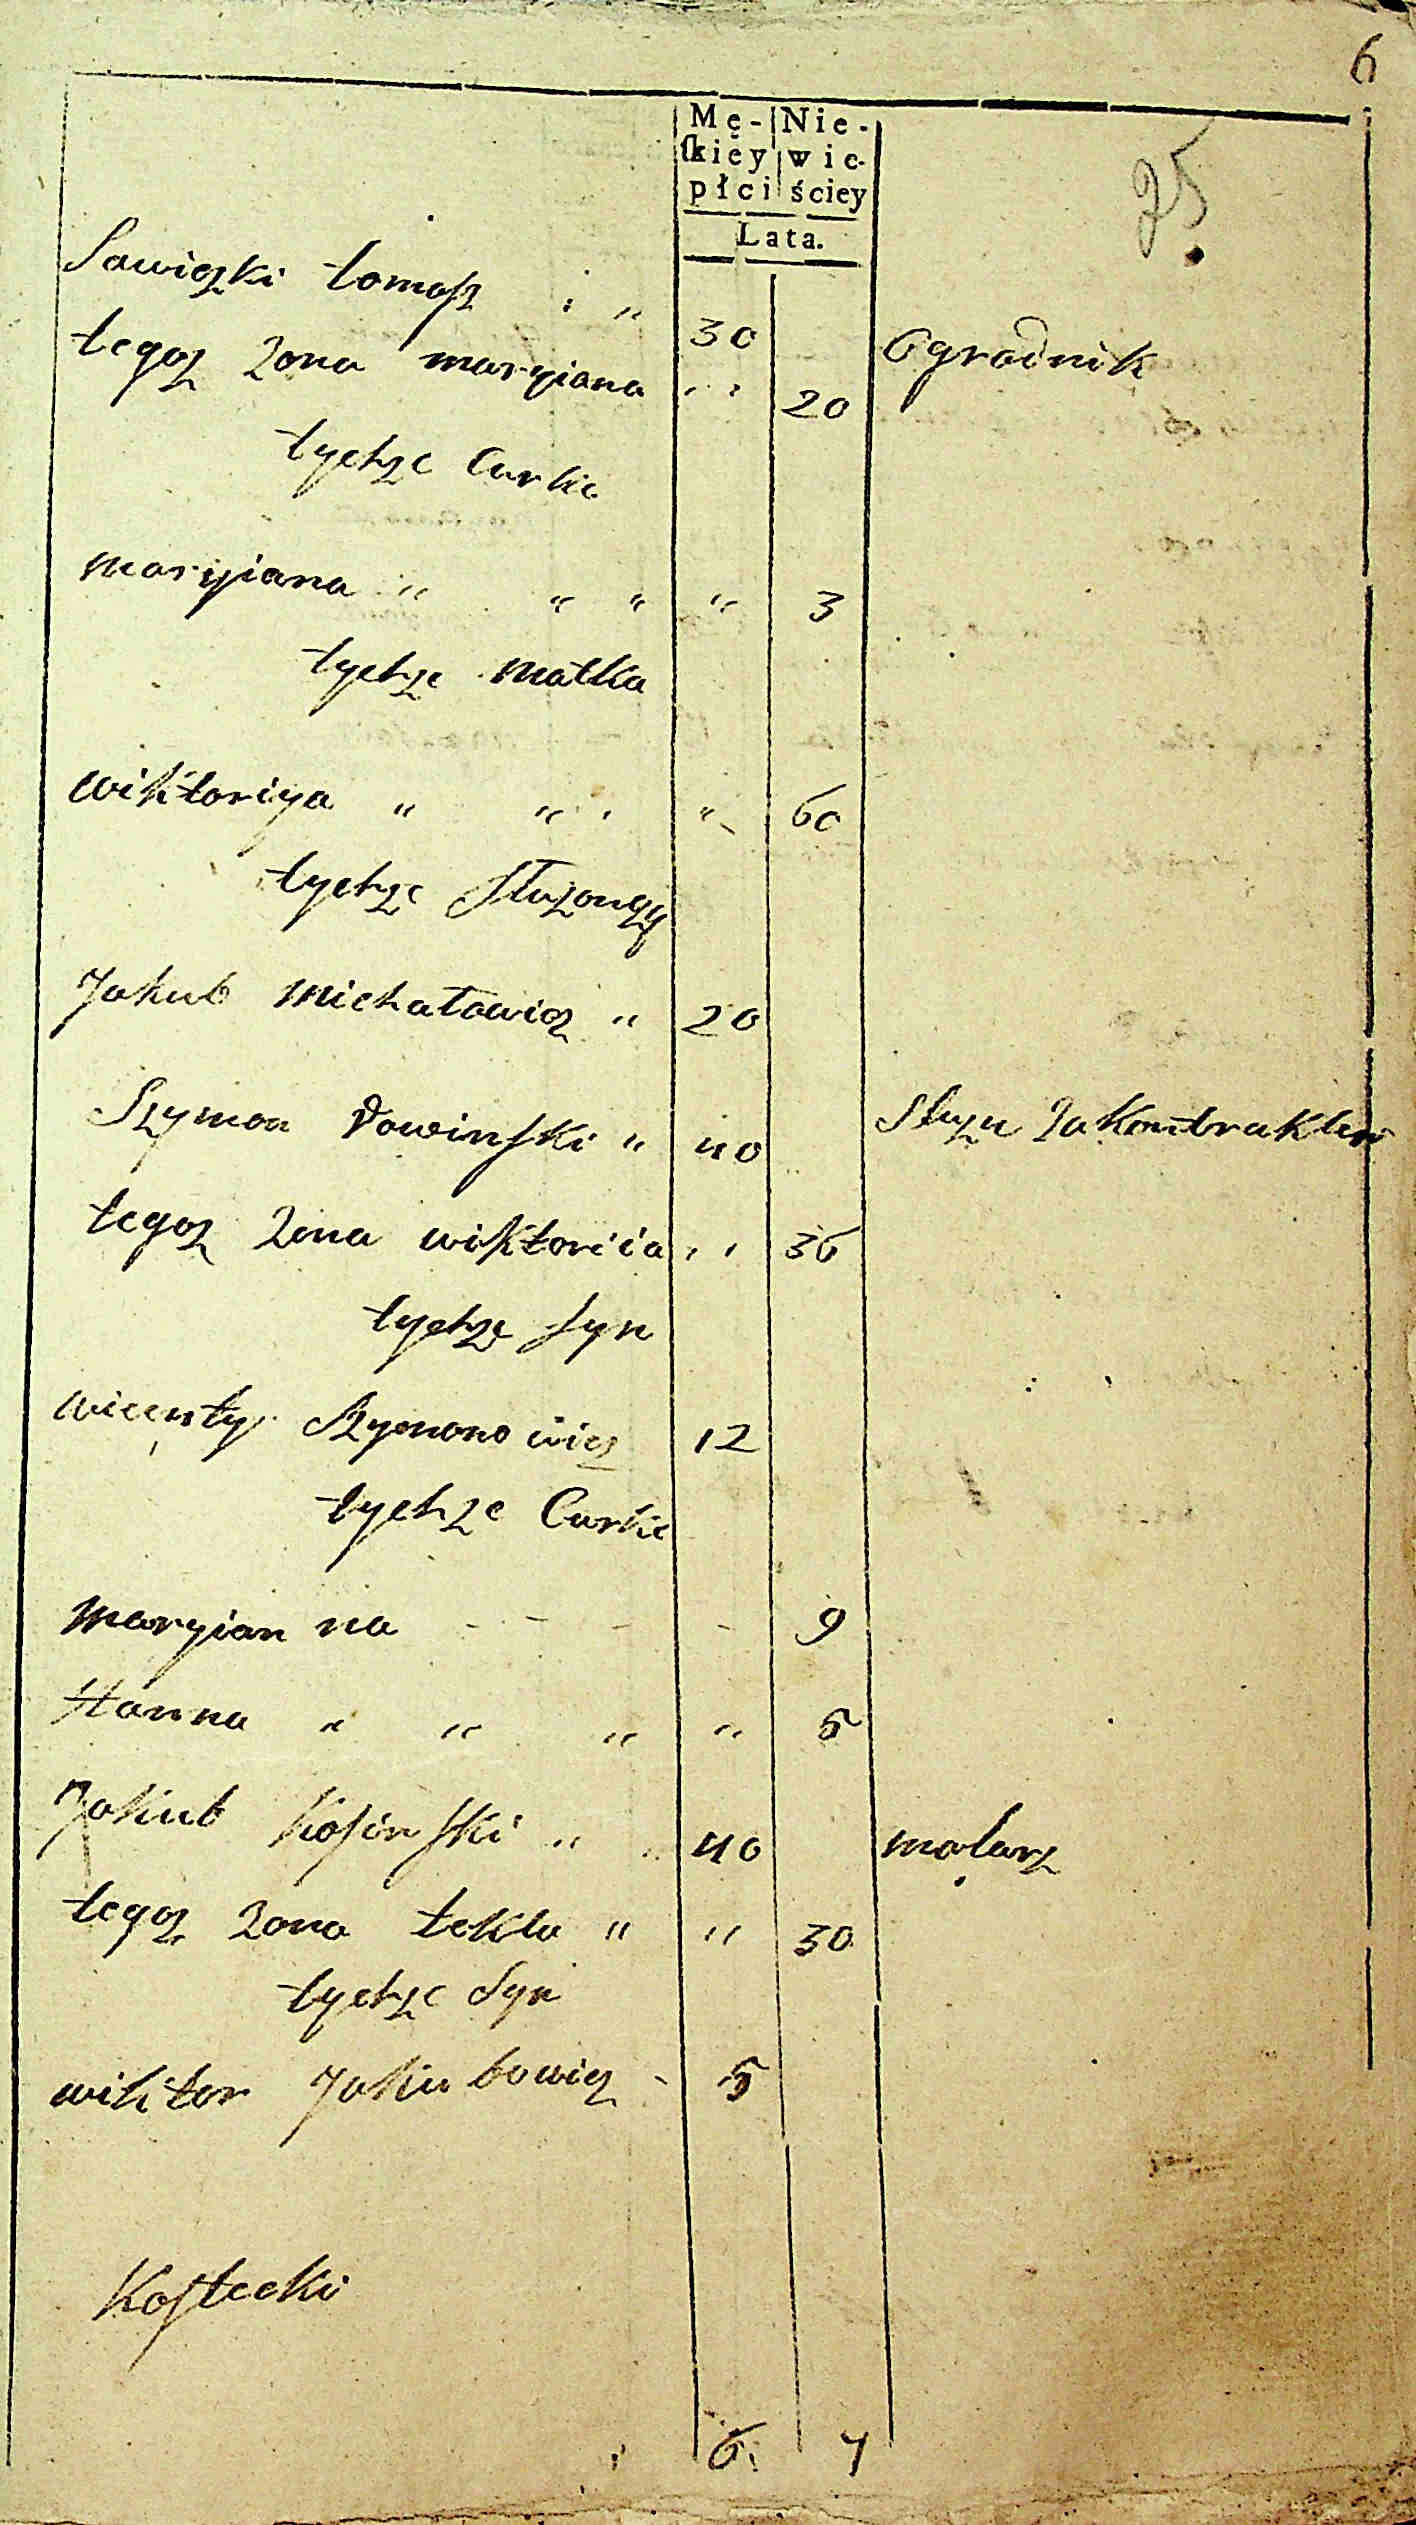 6
Mę- Nie-
ſkiéy wie-
płci ściey
Lata.
75
Sawiczki tomasz „ 30 Ogrodnik
tegoz Zona maryiana „ 20
tychze Curka
maryiana „ „ „ „ 3
tychze matka
wiktoriya „ „ „ „ 60
tychze Służoncy
Jakub michałowicz „ 20
Szymon Dowinski „ 40 Służu Za Kontraktem
tegoz Zona wiktoriia „ 36
tychze Syn
wicenty Szymonowicz 12
tychze Curka
maryianna - - - - 9
Hanna „ „ „ „ 5
Jakub Kosinski „ 40 malarz
tegoz Zona tekla „ „ 30
tychze Syn
wiktor Jakubowicz - 5
Kostecki
6 7